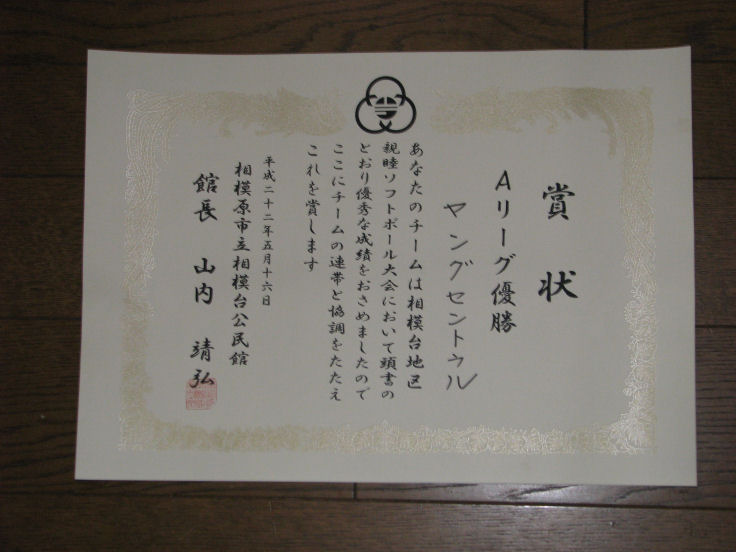 賞状
Aリーグ優勝
ヤングセントウル
あなたのチームは相模台地区
親睦ソフトボール大会において頭書の
とおり優秀な成績をおさめましたので
ここにチームの連帯と協調をたたえ
これを賞します
平成二十二年五月十六日
相模原市立相模台公民館
館長 山内 靖弘